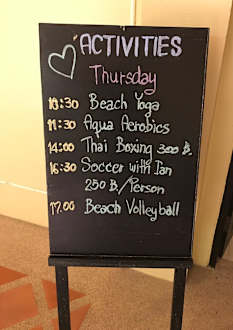 ACTIVITIES
Thursday
10:30 Beach Yoga
11:30 Aqua Aerobics
14:00 Thai Boxing 300 ฿.
16:30 Soccer with Ian
250 ฿./Person
17.00 Beach Volleyball